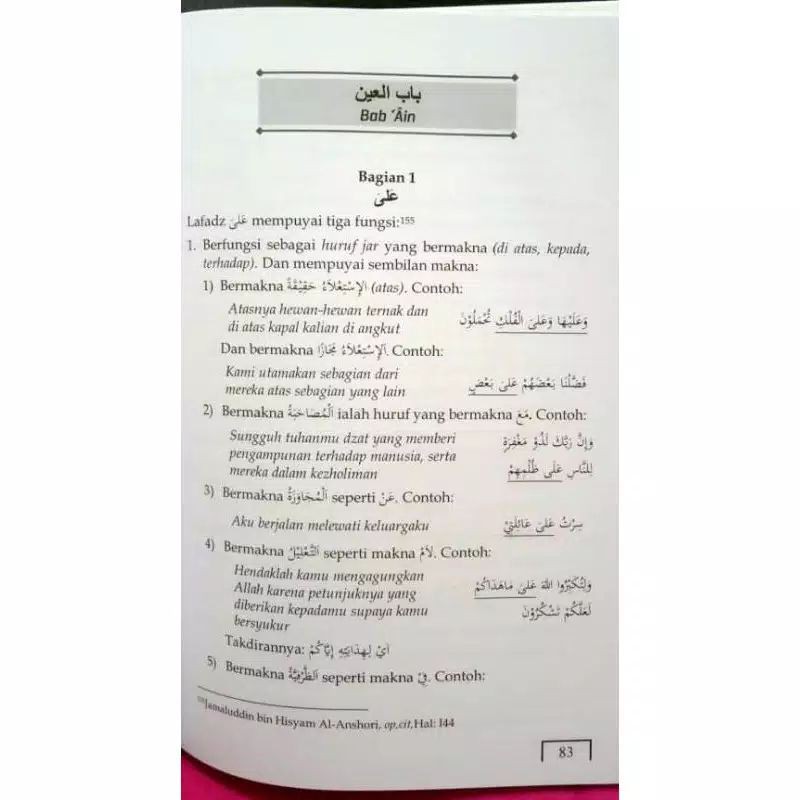 باب العين
Bab ‘Âin
Bagian 1
عَلىَ
Lafadz عَلىَ mempuyai tiga fungsi:155
1. Berfungsi sebagai huruf jar yang bermakna (di atas, kepada,
terhadap). Dan mempuyai sembilan makna:
1) Bermakna الإِسْتِعْلاَءُ حَقِيْقَةً (atas). Contoh:
Atasnya hewan-hewan ternak dan وَعَلَيْهَا وَعَلىَ الْفُلْكِ تُحْمَلُوْنَ
di atas kapal kalian di angkut
Dan bermakna اَلإِسْتِعْلاَءُ مَجَازًا. Contoh:
Kami utamakan sebagian dari
mereka atas sebagian yang lain فَضَّلْنَا بَعْضَهُمْ عَلىَ بَعْضٍ
2) Bermakna اَلْمُصَاحَبَةُ ialah huruf yang bermakna مَعَ. Contoh:
Sungguh tuhanmu dzat yang memberi وَإِنَّ رَبَّكَ لَذُوْ مَغْفِرَةٍ
pengampunan terhadap manusia, serta
mereka dalam kezholiman لِلنَّاسِ عَلىَ ظُلْمِهِمْ
3) Bermakna اَلْمُجَاوَزَةُ seperti عَنْ. Contoh:
Aku berjalan melewati keluargaku سِرْتُ عَلىَ عَائِلَتِيْ
4) Bermakna اَلتَّعْلِيْلُ seperti makna لاَمْ. Contoh:
Hendaklah kamu mengagungkan
Allah karena petunjuknya yang وَلِتُكَبِّرُوا اللهَ عَلىَ مَاهَدَاكُمْ
diberikan kepadamu supaya kamu لَعَلَّكُمْ تَشْكُرُوْنَ
bersyukur
Takdirannya: اَيْ لِهِدَايَتِهِ إِيَّاكُمْ
5) Bermakna اَلظَّرْفِيَّةُ seperti makna فِيْ. Contoh:
155Jamaluddin bin Hisyam Al-Anshori, op,cit,Hal: 144
83